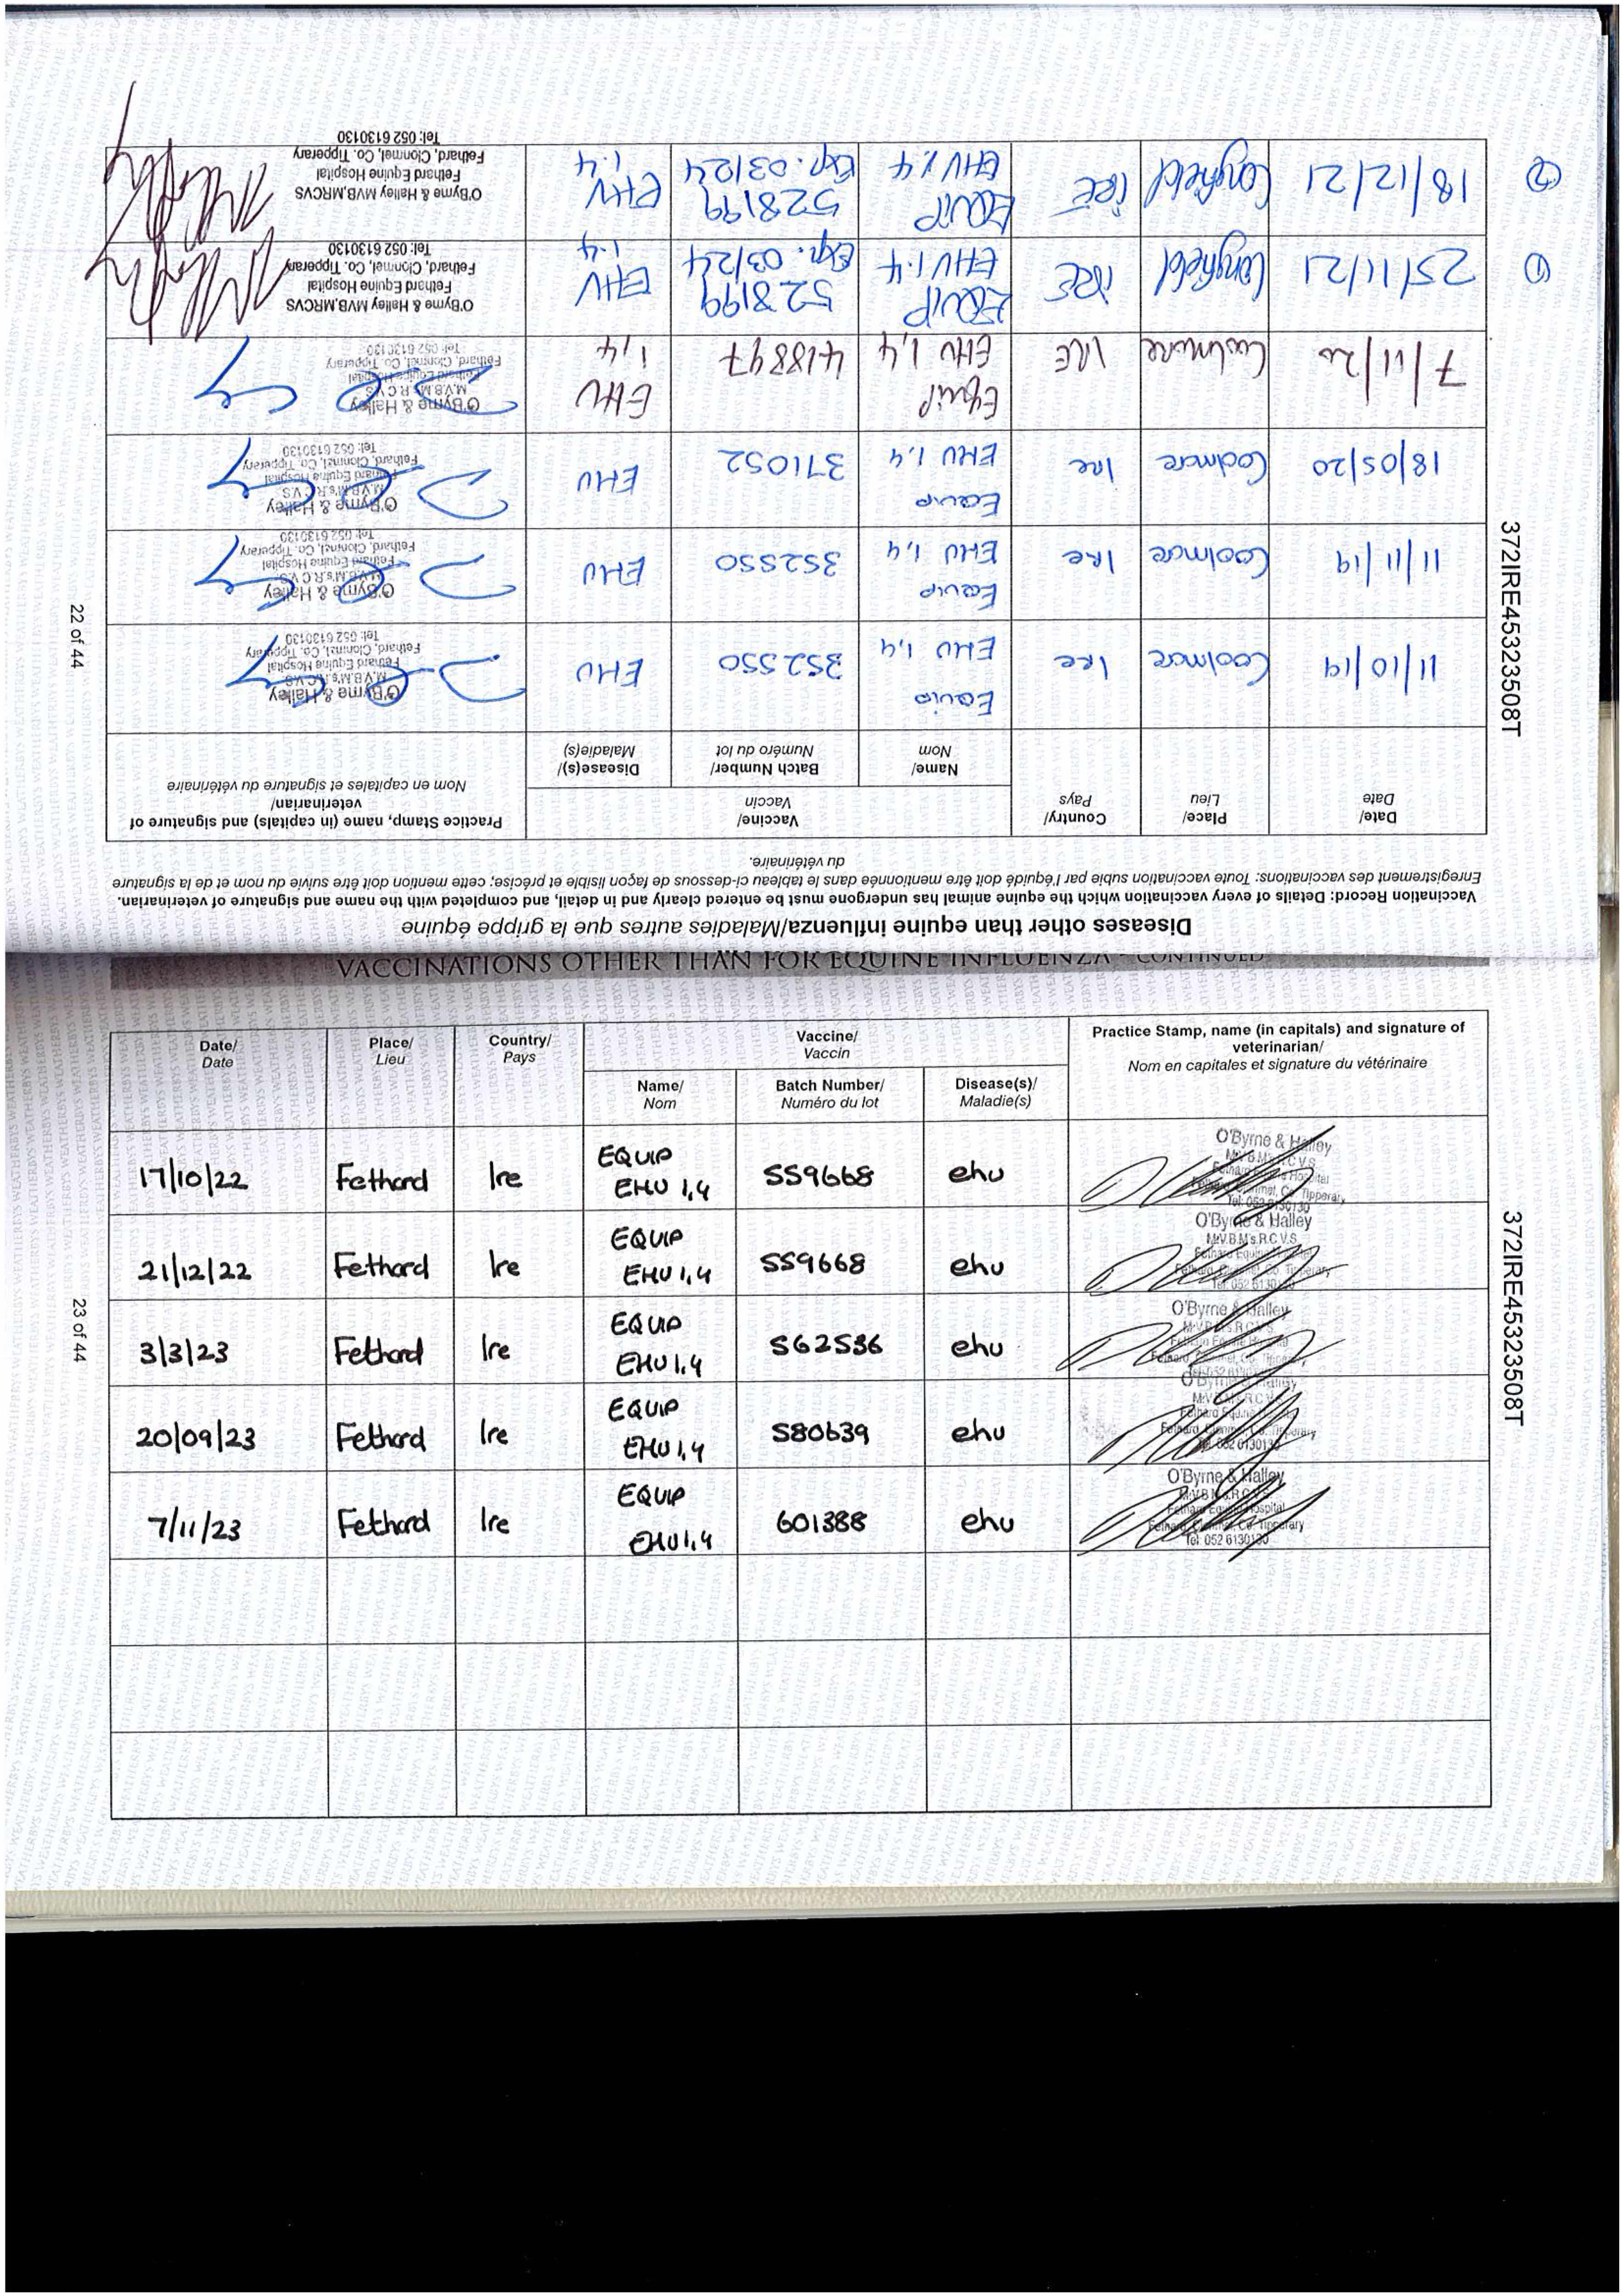 Diseases other than equine influenza/Maladies autres que la grippe équine
Vaccination Record: Details of every vaccination which the equine animal has undergone must be entered clearly and in detail, and completed with the name and signature of veterinarian.
Enregistrement des vaccinations: Toute vaccination subie par l'équidé doit être mentionnée dans le tableau ci-dessous de façon lisible et précise; cette mention doit être suivie du nom et de la signature
du vétérinaire.
Date/
Date
Place/
Lieu
Country/
Pays
Vaccine/
Vaccin
Name/
Nom
Batch Number/
Numéro du lot
Disease(s)/
Maladie(s)
Practice Stamp, name (in capitals) and signature of
veterinarian/
Nom en capitales et signature du vétérinaire
11/10/19 Coolmore Ire Equip EHV 1,4 352550 EHV
O'Byrne & Halley
M.V.B.M's.R.C.V.S.
Fethard Equine Hospital
Fethard, Clonmel, Co. Tipperary
Tel: 052 6130130
11/11/19 Coolmore Ire Equip EHV 1,4 352550 EHV
O'Byrne & Halley
M.V.B.M's.R.C.V.S.
Fethard Equine Hospital
Fethard, Clonmel, Co. Tipperary
Tel: 052 6130130
18/05/20 Coolmore Ire Equip EHV 1,4 371052 EHV
O'Byrne & Halley
M.V.B.M's.R.C.V.S.
Fethard Equine Hospital
Fethard, Clonmel, Co. Tipperary
Tel: 052 6130130
7/11/20 Coolmore IRE Equip EHV 1,4 418897 EHV 1,4
O'Byrne & Halley
M.V.B.M's.R.C.V.S.
Fethard Equine Hospital
Fethard, Clonmel, Co. Tipperary
Tel: 052 6130130
① 25/11/21 Longfield IRE EQUIP EHV 1.4 528199 Exp. 03/24 EHV 1.4
O'Byrne & Halley MVB,MRCVS
Fethard Equine Hospital
Fethard, Clonmel, Co. Tipperary
Tel: 052 6130130
② 18/12/21 Longfield IRE EQUIP EHV 1.4 528199 Exp. 03/24 EHV 1.4
O'Byrne & Halley MVB,MRCVS
Fethard Equine Hospital
Fethard, Clonmel, Co. Tipperary
Tel: 052 6130130
372IRE45323508T
22 of 44
VACCINATIONS OTHER THAN FOR EQUINE INFLUENZA - CONTINUED
Date/
Date
Place/
Lieu
Country/
Pays
Vaccine/
Vaccin
Name/
Nom
Batch Number/
Numéro du lot
Disease(s)/
Maladie(s)
Practice Stamp, name (in capitals) and signature of
veterinarian/
Nom en capitales et signature du vétérinaire
17/10/22 Fethard Ire EQUIP EHV 1,4 559668 ehv
O'Byrne & Halley
21/12/22 Fethard Ire EQUIP EHV 1,4 559668 ehv
O'Byrne & Halley
M.V.B.M's.R.C.V.S.
3/3/23 Fethard Ire EQUIP EHV 1,4 562536 ehv
O'Byrne & Halley
20/09/23 Fethard Ire EQUIP EHV 1,4 580639 ehv
O'Byrne & Halley
7/11/23 Fethard Ire EQUIP EHV 1,4 601388 ehv
O'Byrne & Halley
Tel: 052 6130130
372IRE45323508T
23 of 44